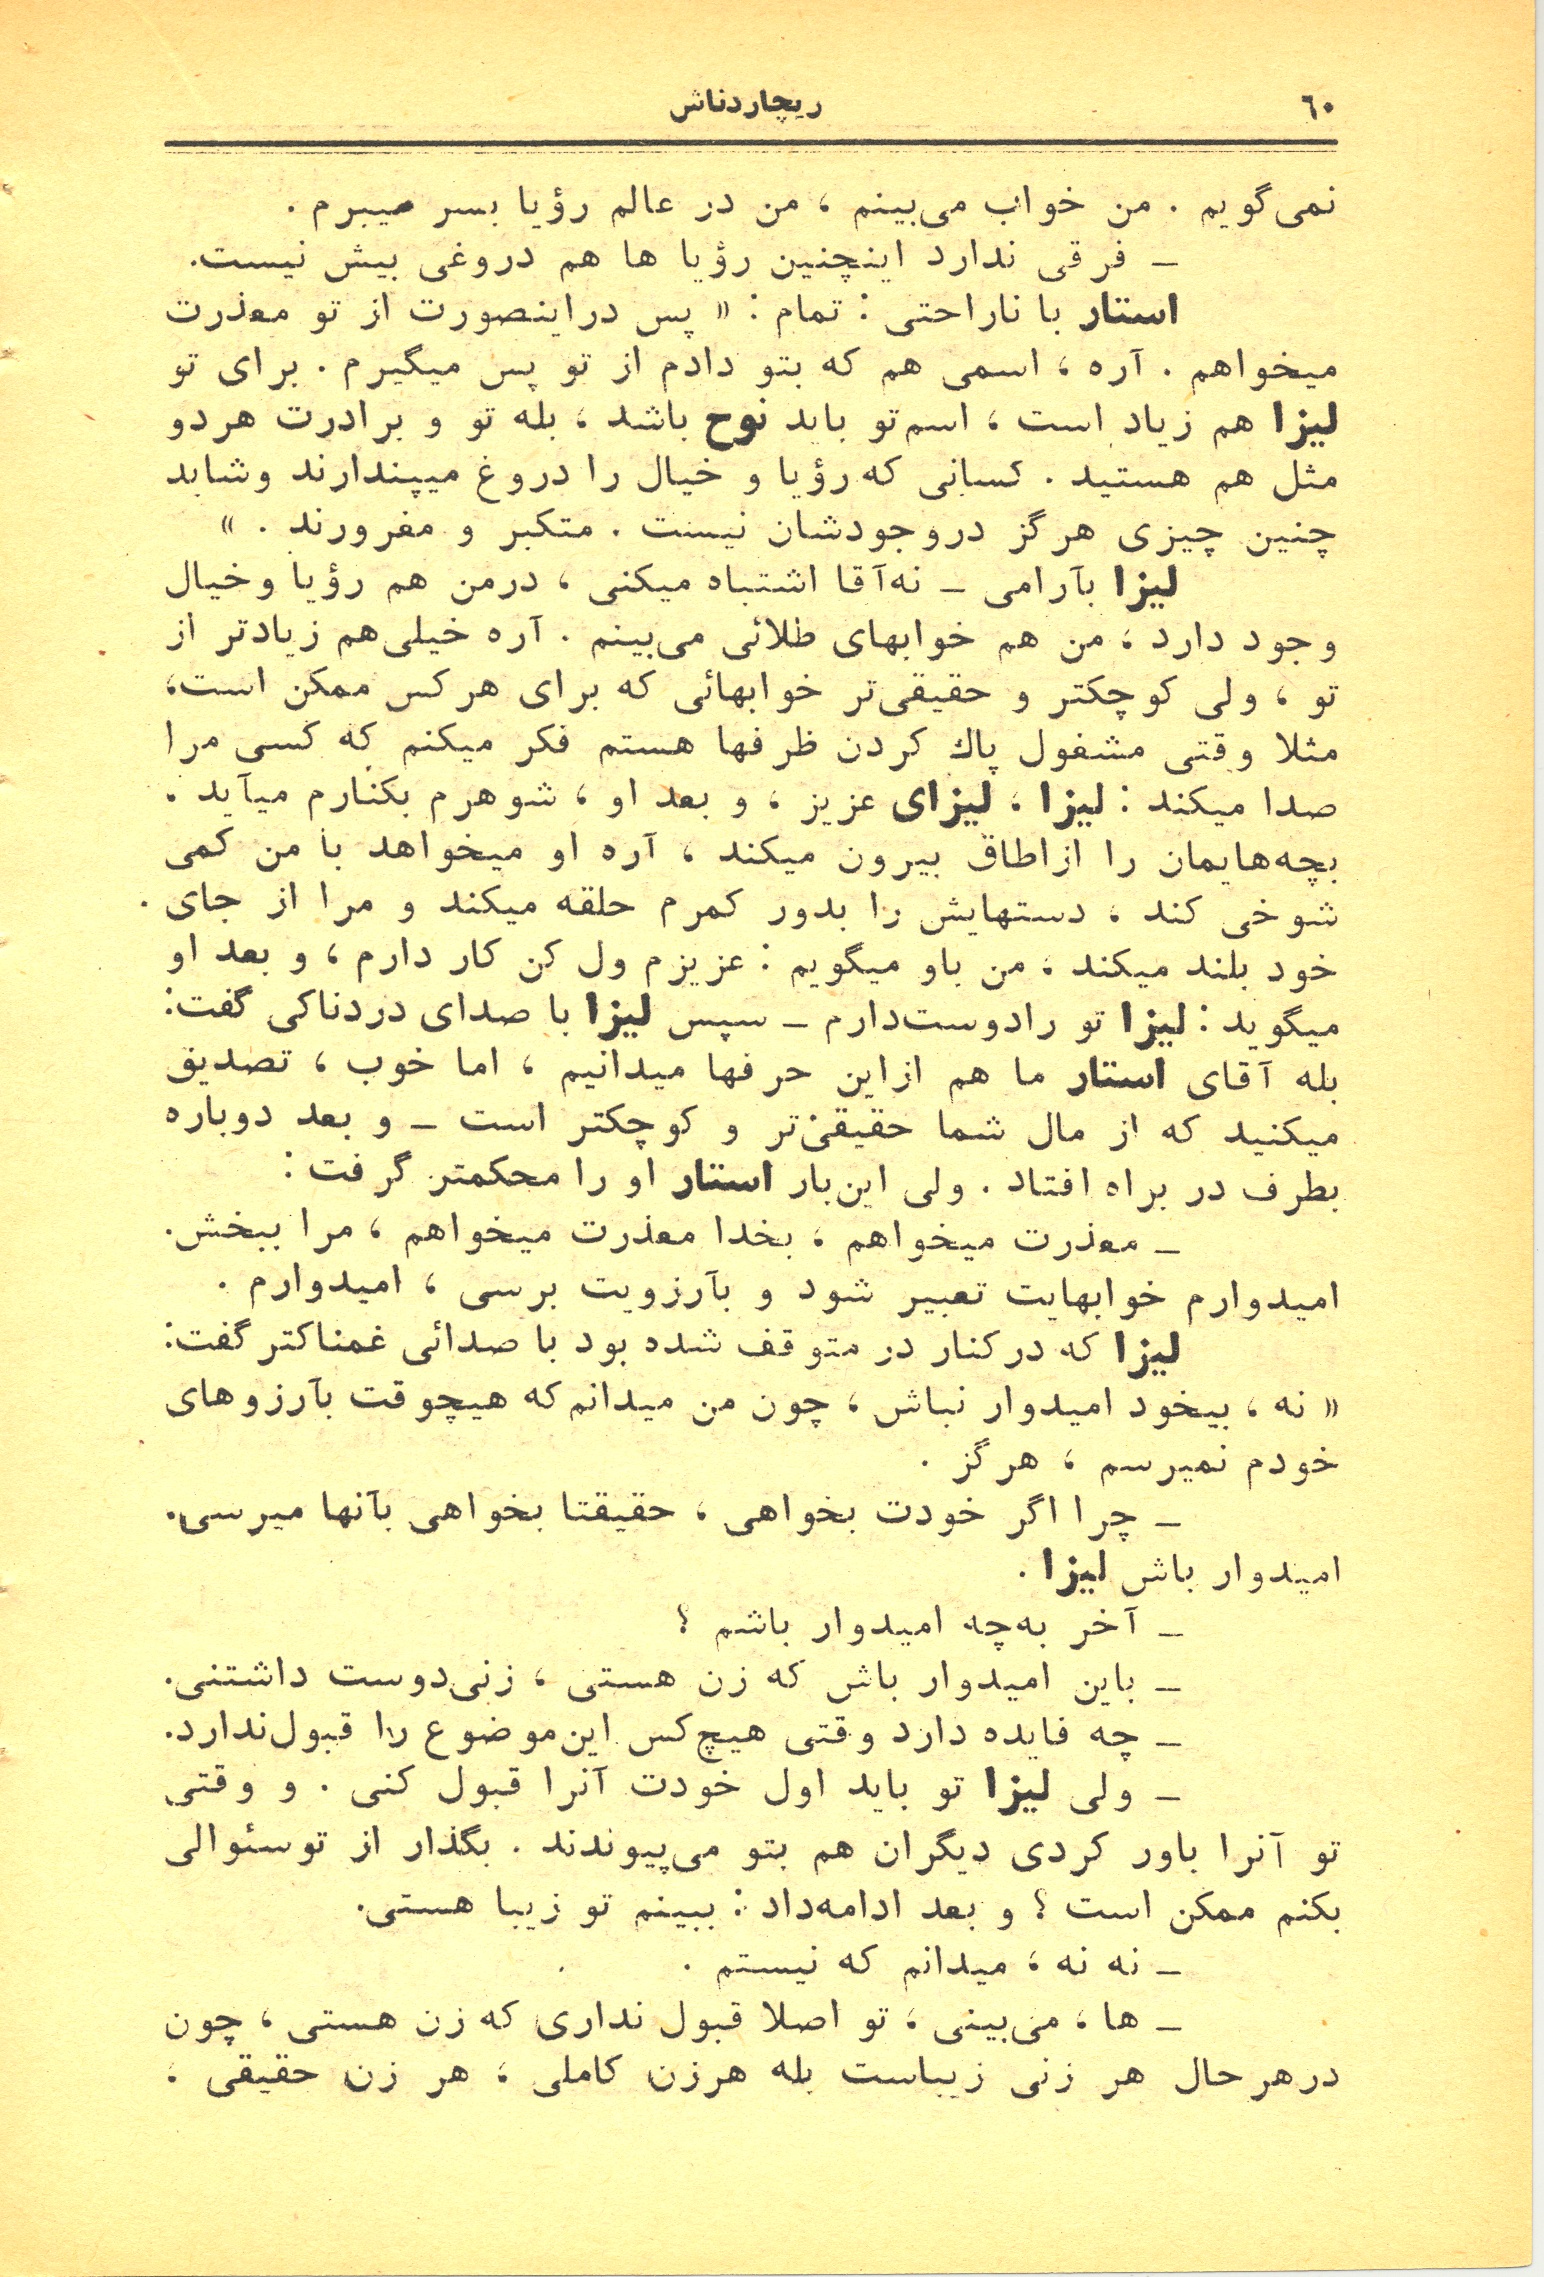 ٦٠
ریچاردناش
نمی‌گویم . من خواب می‌بینم ، من در عالم رؤیا بسر میبرم .
ـ فرقی ندارد اینچنین رؤیا ها هم دروغی بیش نیست.
استار با ناراحتی : تمام : « پس دراینصورت از تو معذرت
میخواهم . آره ، اسمی هم که بتو دادم از تو پس میگیرم . برای تو
لیزا هم زیاد است ، اسم‌تو باید نوح باشد ، بله تو و برادرت هردو
مثل هم هستید . کسانی که رؤیا و خیال را دروغ میپندارند وشاید
چنین چیزی هرگز دروجودشان نیست . متکبر و مغرورند . »
لیزا بآرامی ـ نه‌آقا اشتباه میکنی ، درمن هم رؤیا وخیال
وجود دارد ، من هم خوابهای طلائی می‌بینم . آره خیلی‌هم زیادتر از
تو ، ولی کوچکتر و حقیقی‌تر خوابهائی که برای هرکس ممکن است،
مثلا وقتی مشغول پاك کردن ظرفها هستم فکر میکنم که کسی مرا
صدا میکند : لیزا ، لیزای عزیز ، و بعد او ، شوهرم بکنارم میآید .
بچه‌هایمان را ازاطاق بیرون میکند ، آره او میخواهد با من کمی
شوخی کند ، دستهایش را بدور کمرم حلقه میکند و مرا از جای .
خود بلند میکند ، من باو میگویم : عزیزم ول کن کار دارم ، و بعد او
میگوید : لیزا تو رادوست‌دارم ـ سپس لیزا با صدای دردناکی گفت:
بله آقای استار ما هم ازاین حرفها میدانیم ، اما خوب ، تصدیق
میکنید که از مال شما حقیقی‌تر و کوچکتر است ـ و بعد دوباره
بطرف در براه افتاد . ولی این‌بار استار او را محکمتر گرفت :
ـ معذرت میخواهم ، بخدا معذرت میخواهم ، مرا ببخش.
امیدوارم خوابهایت تعبیر شود و بآرزویت برسی ، امیدوارم .
لیزا که درکنار در متوقف شده بود با صدائی غمناکتر گفت:
« نه ، بیخود امیدوار نباش ، چون من میدانم‌که هیچوقت بآرزوهای
خودم نمیرسم ، هرگز .
ـ چرا اگر خودت بخواهی ، حقیقتا بخواهی بآنها میرسی.
امیدوار باش لیزا .
ـ آخر به‌چه امیدوار باشم ؟
ـ باین امیدوار باش که زن هستی ، زنی‌دوست داشتنی.
ـ چه فایده دارد وقتی هیچ‌کس این‌موضوع را قبول‌ندارد.
ـ ولی لیزا تو باید اول خودت آنرا قبول کنی . و وقتی
تو آنرا باور کردی دیگران هم بتو می‌پیوندند . بگذار از توسئوالی
بکنم ممکن است ؟ و بعد ادامه‌داد : ببینم تو زیبا هستی.
ـ نه نه ، میدانم که نیستم .
ـ ها ، می‌بینی ، تو اصلا قبول نداری که زن هستی ، چون
درهرحال هر زنی زیباست بله هرزن کاملی ، هر زن حقیقی ،